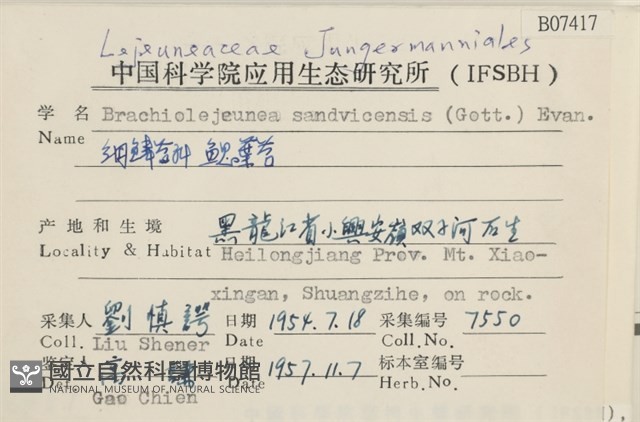 B07417
Lejeuneaceae Jungermanniales
中国科学院应用生态研究所 (IFSBH)
学 名 Brachiolejeunea sandvicensis (Gott.) Evan.
Name 細鱗苔科 鰓葉苔
产 地 和 生 境 黑龍江省小興安嶺双子河石生
Locality & Habitat Heilongjiang Prov. Mt. Xiao-
xingan, Shuangzihe, on rock.
采集人 劉慎諤 日期 1954.7.18 采集编号 7550
Coll. Liu Shener Date Coll.No.
鉴定人 日期 1957.11.7 标本室编号
Det. Date Herb.No.
Gao Chien
國立自然科學博物館
NATIONAL MUSEUM OF NATURAL SCIENCE
),